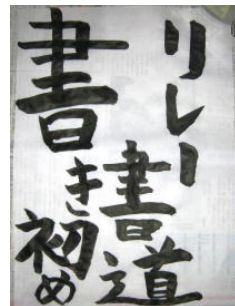 リレー書道
書き初め